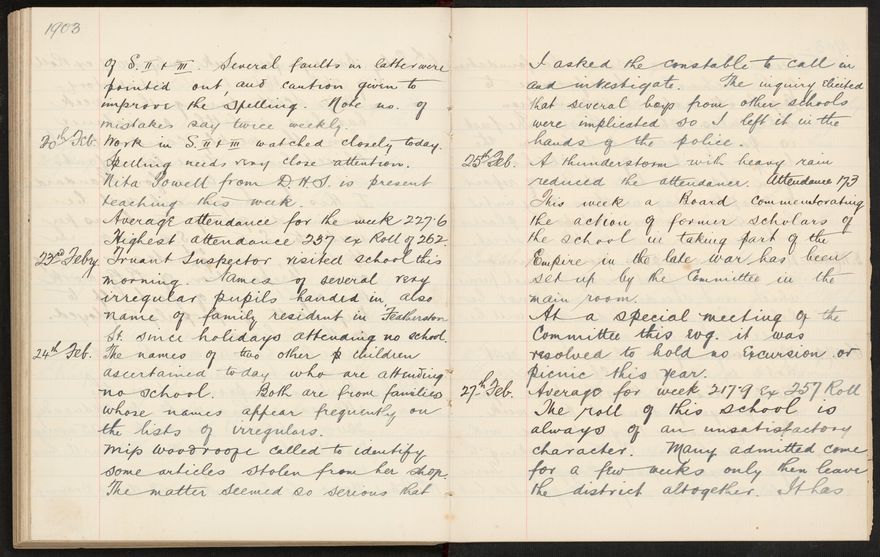 1903
of S. II & III Several faults in latter were
pointed out, and caution given to
improve the spelling. Note no. of
mistakes say twice weekly.
20th Feb. Work in S. II & III watched closely today.
Spelling needs very close attention.
Nita Powell from D.H.S. is present
teaching this week.
Average attendance for the week 227.6
Highest attendance 257 ex Roll of 262.
23rd Feby. Truant Inspector visited school this
morning. Names of several very
irregular pupils handed in, also
name of family resident in Featherston
St. since holidays attending no school.
24th Feb. The names of two other p children
ascertained today who are attending
no school. Both are from families
whose names appear frequently on
the lists of irregulars.
Miss Woodroofe called to identify
some articles stolen from her shop.
The matter seemed so serious that
I asked the constable to call in
and investigate. The inquiry elicited
that several boys from other schools
were implicated so I left it in the
hands of the police.
25th Feb. A thunderstorm with heavy rain
reduced the attendance. Attendance 173
This week a Board commemorating
the action of former scholars of
the school in taking part of the
Empire in the late war has been
set up by the Committee in the
main room.
At a special meeting of the
Committee this evg. it was
resolved to hold no Excursion or
picnic this year.
27th Feb. Average for week 217.9 Ex 257 Roll
The roll of this school is
always of an unsatisfactory
character. Many admitted come
for a few weeks only then leave
the district altogether. It has